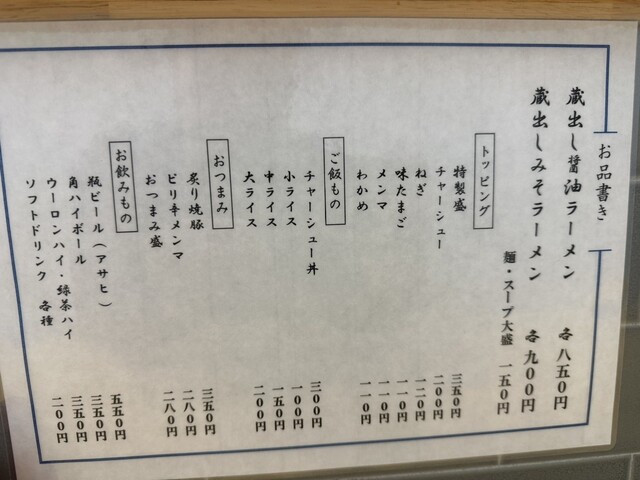 お品書き
蔵出し醤油ラーメン 各八五〇円
蔵出しみそラーメン 各九〇〇円
麺・スープ大盛 一五〇円
トッピング
特製盛 三五〇円
チャーシュー 二〇〇円
ねぎ 一二〇円
味たまご 一一〇円
メンマ 一一〇円
わかめ 一一〇円
ご飯もの
チャーシュー丼 三〇〇円
小ライス 一〇〇円
中ライス 一五〇円
大ライス 二〇〇円
おつまみ
炙り焼豚 三五〇円
ピリ辛メンマ 二八〇円
おつまみ盛 二八〇円
お飲みもの
瓶ビール(アサヒ) 五五〇円
角ハイボール 三五〇円
ウーロンハイ・緑茶ハイ 三五〇円
ソフトドリンク 各種 二〇〇円